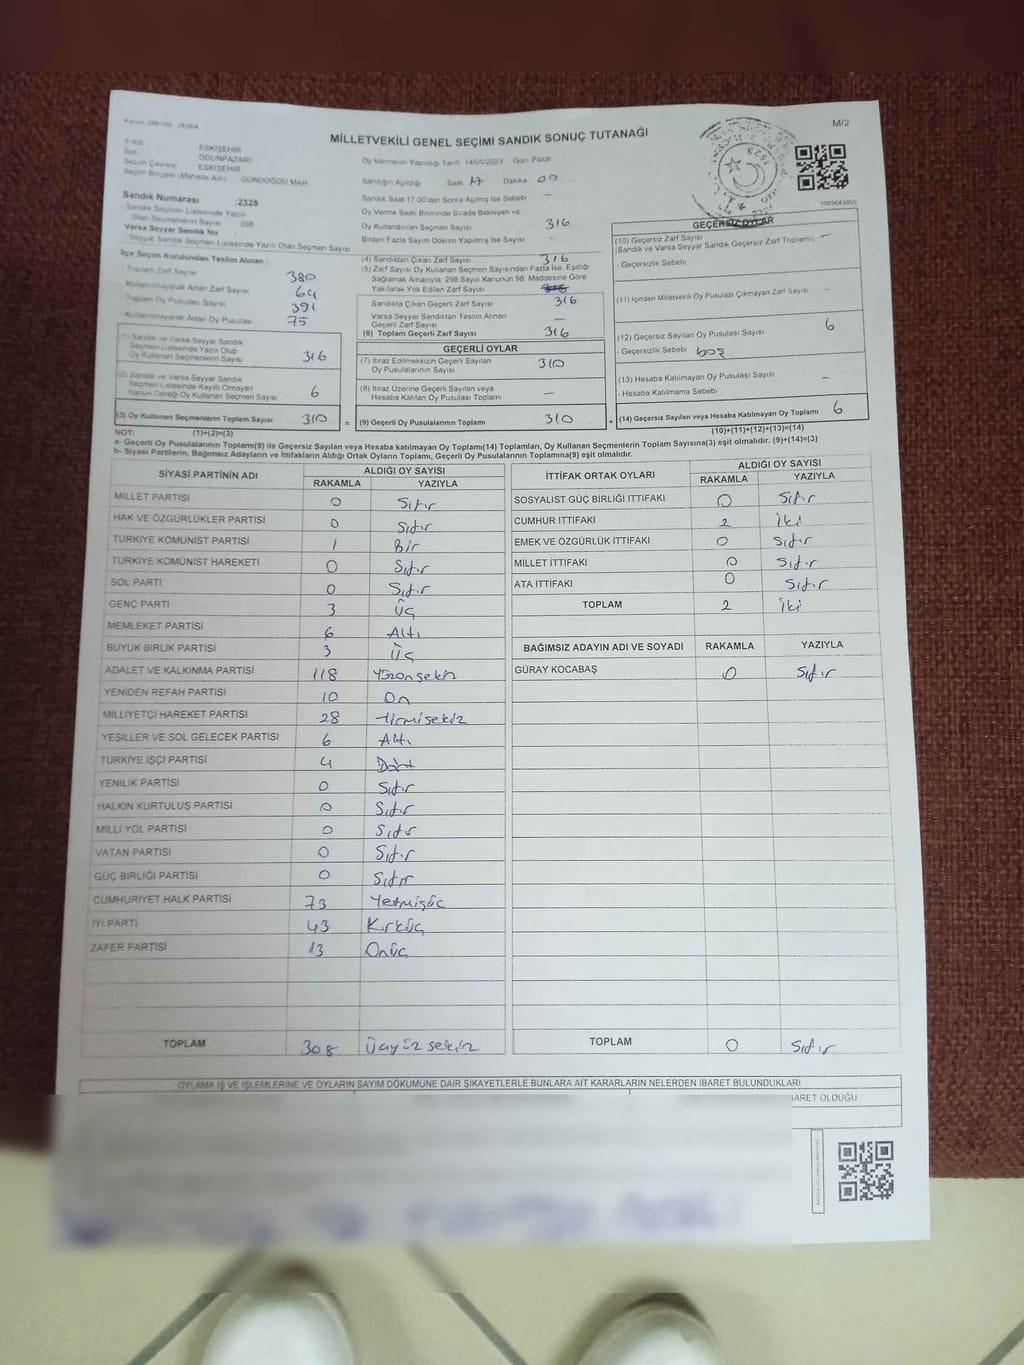 MİLLETVEKİLİ GENEL SEÇİMİ SANDIK SONUÇ TUTANAĞI
M/2
İl Adı ESKİŞEHİR
İlçe ODUNPAZARI
Seçim Çevresi ESKİŞEHİR
Seçim Bölgesi (Mahalle Adı) GÜNDOĞDU MAH
Sandık Numarası :2325
- Sandık Seçmen Listesinde Yazılı
Olan Seçmenlerin Sayısı
Varsa Seyyar Sandık No
- Seyyar Sandık Seçmen Listesinde Yazılı Olan Seçmen Sayısı
İlçe Seçim Kurulundan Teslim Alınan :
- Toplam Zarf Sayısı 380
- Kullanılmayarak Artan Zarf Sayısı 64
- Toplam Oy Pusulası Sayısı 391
- Kullanılmayarak Artan Oy Pusulası 75
(1) Sandık ve Varsa Seyyar Sandık
Seçmen Listesinde Yazılı Olup
Oy Kullanan Seçmenlerin Sayısı 316
(2) Sandık ve Varsa Seyyar Sandık
Seçmen Listesinde Kayıtlı Olmayan
Kanun Gereği Oy Kullanan Seçmen Sayısı 6
(3) Oy Kullanan Seçmenlerin Toplam Sayısı 310
Oy Vermenin Yapıldığı Tarih 14/05/2023 Gün: Pazar
Sandığın Açıldığı Saat 17 Dakika 00
Sandık Saat 17 00'den Sonra Açılmış İse Sebebi –
Oy Verme Saati Bitiminde Sırada Bekleyen ve
Oy Kullandırılan Seçmen Sayısı 316
Birden Fazla Sayım Döküm Yapılmış İse Sayısı -
(4) Sandıktan Çıkan Zarf Sayısı 316
(5) Zarf Sayısı Oy Kullanan Seçmen Sayısından Fazla İse, Eşitliği
Sağlamak Amacıyla; 298 Sayılı Kanunun 98. Maddesine Göre
Yakılarak Yok Edilen Zarf Sayısı
Sandıkta Çıkan Geçerli Zarf Sayısı 316
Varsa Seyyar Sandıktan Teslim Alınan
Geçerli Zarf Sayısı –
(6) Toplam Geçerli Zarf Sayısı 316
GEÇERLİ OYLAR
(7) İtiraz Edilmeksizin Geçerli Sayılan
Oy Pusulalarının Sayısı 310
(8) İtiraz Üzerine Geçerli Sayılan veya
Hesaba Katılan Oy Pusulası Toplamı –
= (9) Geçerli Oy Pusulalarının Toplamı 310
GEÇERSİZ OYLAR
(10) Geçersiz Zarf Sayısı –
(Sandık ve Varsa Seyyar Sandık Geçersiz Zarf Toplamı)
- Geçersizlik Sebebi:
(11) İçinden Milletvekili Oy Pusulası Çıkmayan Zarf Sayısı –
(12) Geçersiz Sayılan Oy Pusulası Sayısı 6
- Geçersizlik Sebebi boş
(13) Hesaba Katılmayan Oy Pusulası Sayısı –
- Hesaba Katılmama Sebebi
+ (14) Geçersiz Sayılan veya Hesaba Katılmayan Oy Toplamı 6
NOT: (1)+(2)=(3) (10)+(11)+(12)+(13)=(14)
a- Geçerli Oy Pusulalarının Toplamı(9) ile Geçersiz Sayılan veya Hesaba katılmayan Oy Toplamı(14) Toplamları, Oy Kullanan Seçmenlerin Toplam Sayısına(3) eşit olmalıdır. (9)+(14)=(3)
b- Siyasi Partilerin, Bağımsız Adayların ve İttifakların Aldığı Ortak Oyların Toplamı, Geçerli Oy Pusulalarının Toplamına(9) eşit olmalıdır.
SİYASİ PARTİNİN ADI ALDIĞI OY SAYISI
RAKAMLA YAZIYLA
MİLLET PARTİSİ 0 Sıfır
HAK VE ÖZGÜRLÜKLER PARTİSİ 0 Sıfır
TÜRKİYE KOMÜNİST PARTİSİ 1 Bir
TÜRKİYE KOMÜNİST HAREKETİ 0 Sıfır
SOL PARTİ 0 Sıfır
GENÇ PARTİ 3 Üç
MEMLEKET PARTİSİ 6 Altı
BÜYÜK BİRLİK PARTİSİ 3 Üç
ADALET VE KALKINMA PARTİSİ 118 Yüzonsekiz
YENİDEN REFAH PARTİSİ 10 On
MİLLİYETÇİ HAREKET PARTİSİ 28 Yirmisekiz
YEŞİLLER VE SOL GELECEK PARTİSİ 6 Altı
TÜRKİYE İŞÇİ PARTİSİ 4 Dört
YENİLİK PARTİSİ 0 Sıfır
HALKIN KURTULUŞ PARTİSİ 0 Sıfır
MİLLİ YOL PARTİSİ 0 Sıfır
VATAN PARTİSİ 0 Sıfır
GÜÇ BİRLİĞİ PARTİSİ 0 Sıfır
CUMHURİYET HALK PARTİSİ 73 Yetmişüç
İYİ PARTİ 43 Kırküç
ZAFER PARTİSİ 13 Onüç
TOPLAM 308 Üçyüz sekiz
İTTİFAK ORTAK OYLARI ALDIĞI OY SAYISI
RAKAMLA YAZIYLA
SOSYALİST GÜÇ BİRLİĞİ İTTİFAKI 0 Sıfır
CUMHUR İTTİFAKI 2 İki
EMEK VE ÖZGÜRLÜK İTTİFAKI 0 Sıfır
MİLLET İTTİFAKI 0 Sıfır
ATA İTTİFAKI 0 Sıfır
TOPLAM 2 İki
BAĞIMSIZ ADAYIN ADI VE SOYADI RAKAMLA YAZIYLA
GÜRAY KOCABAŞ 0 Sıfır
TOPLAM 0 Sıfır
OYLAMA İŞ VE İŞLEMLERİNE VE OYLARIN SAYIM DÖKÜMÜNE DAİR ŞİKAYETLERLE BUNLARA AİT KARARLARIN NELERDEN İBARET BULUNDUKLARI
BARET OLDUĞU